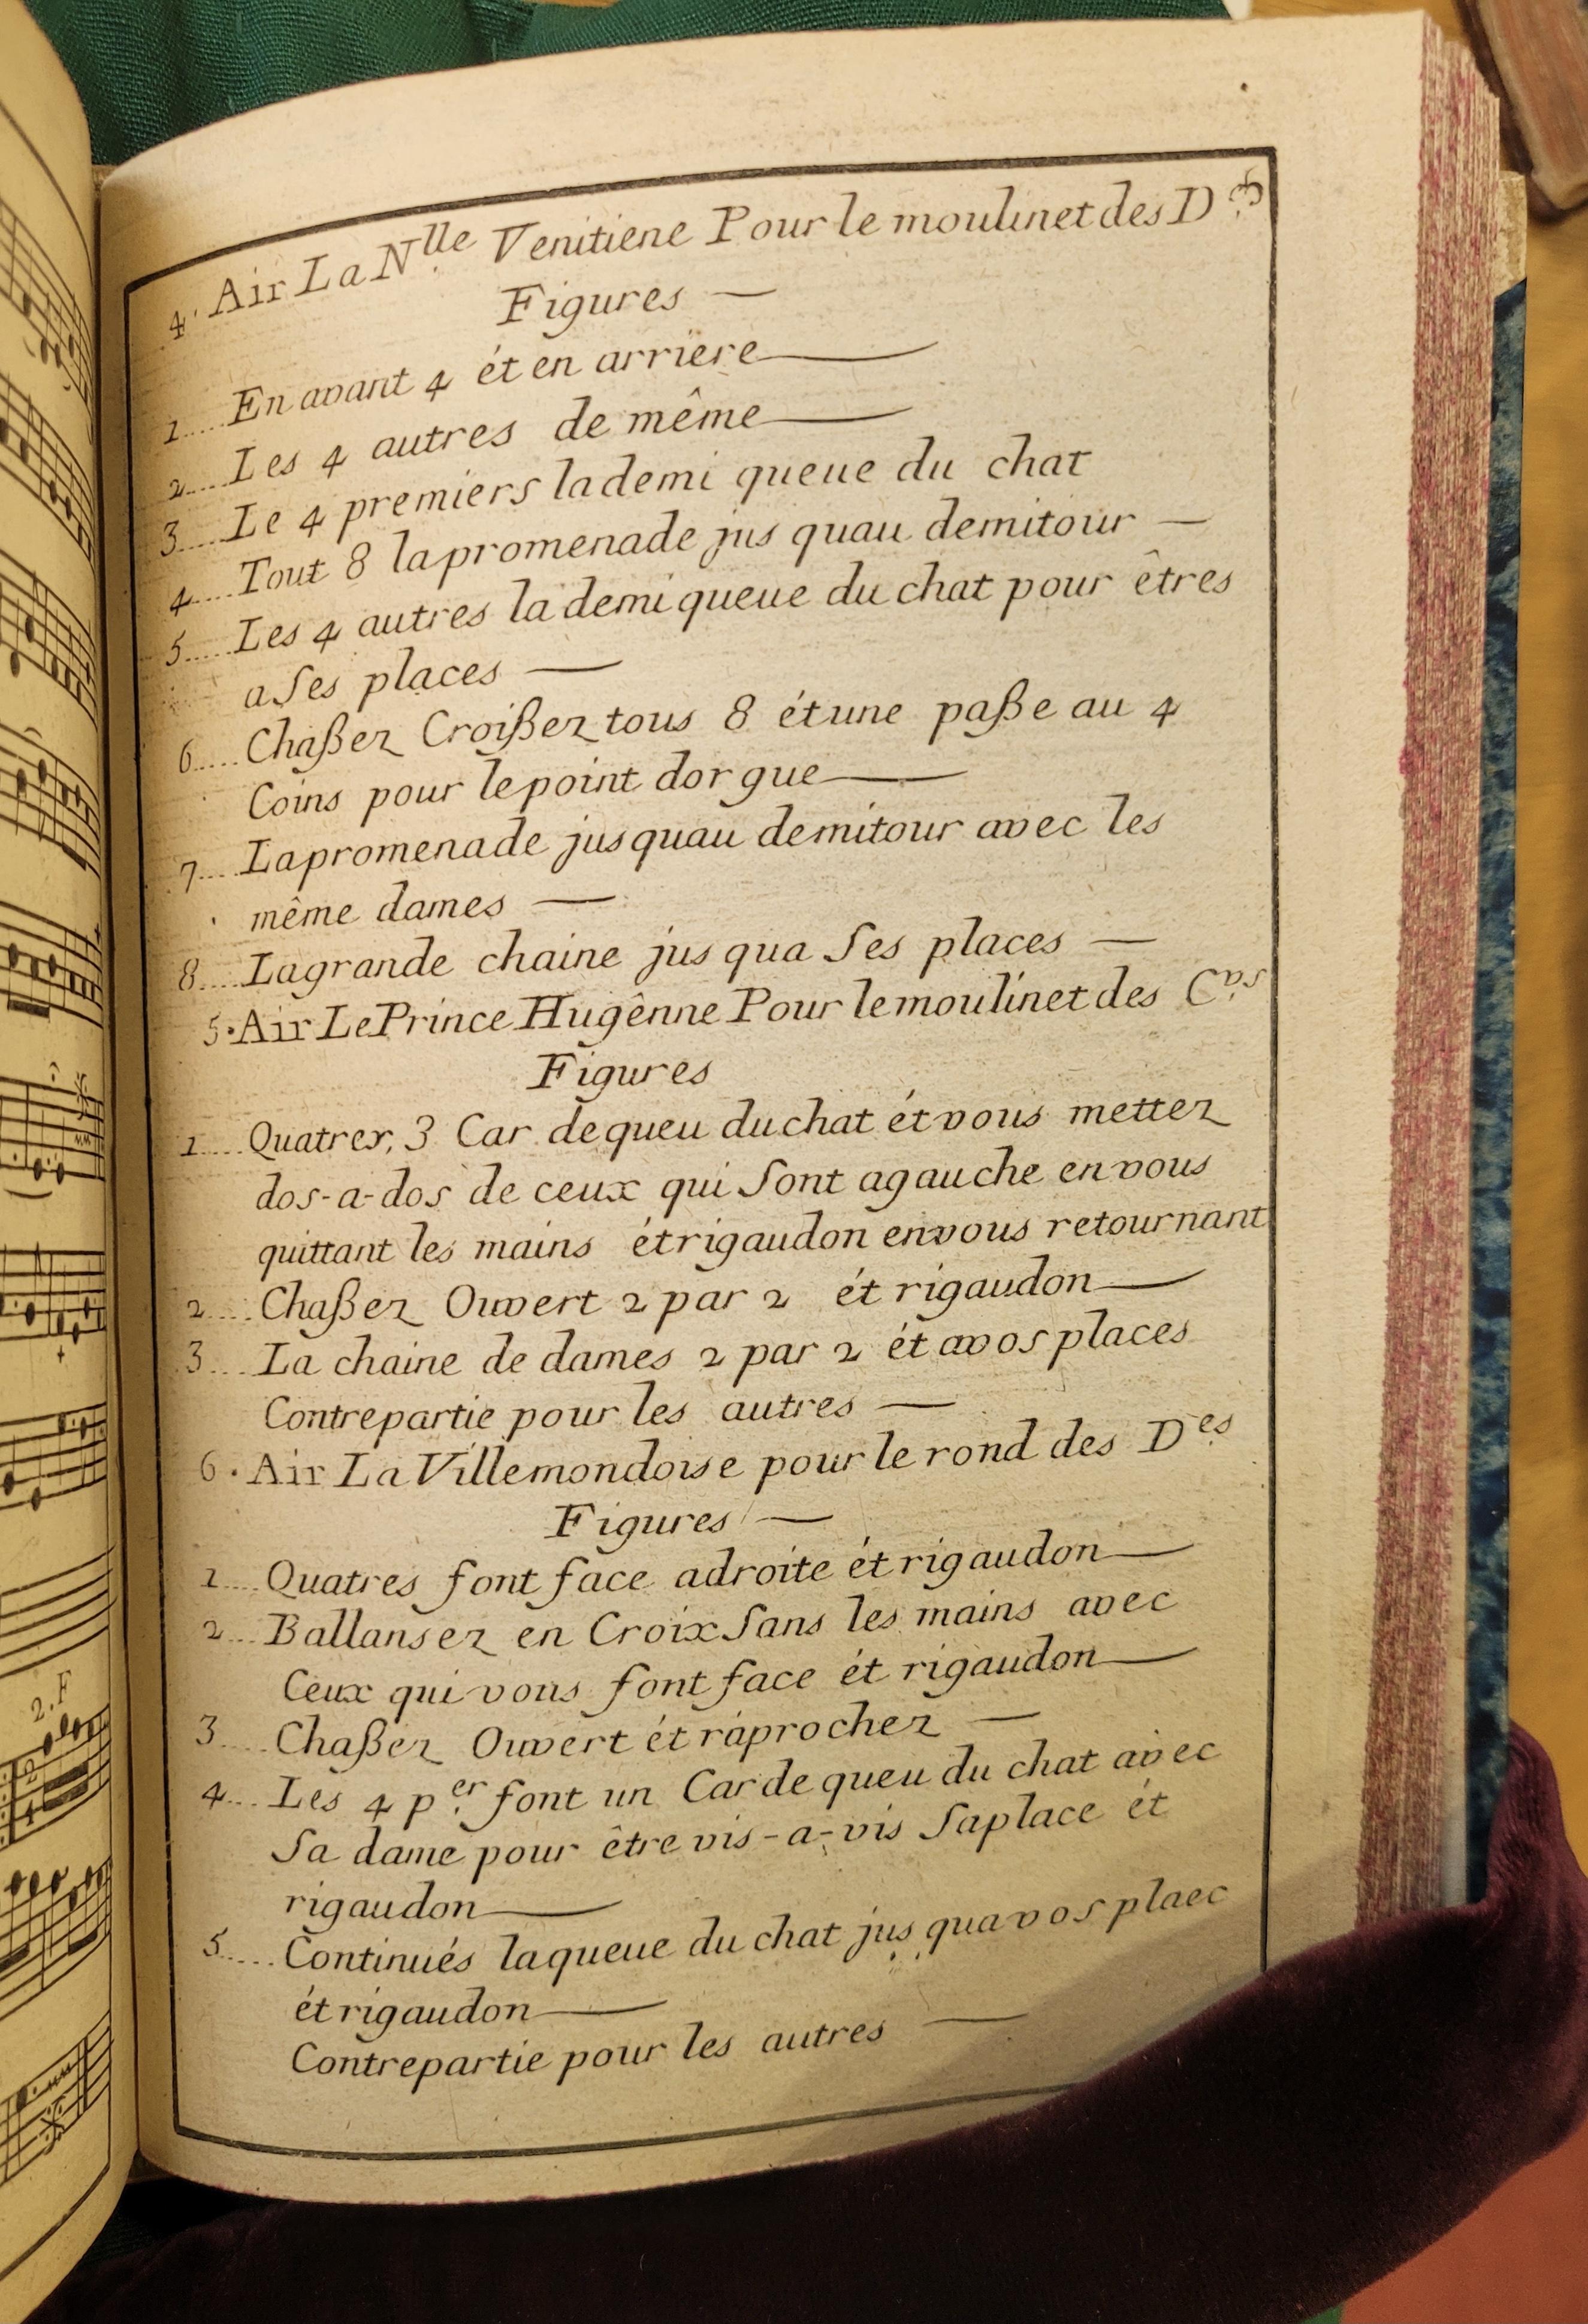 4. Air La Nlle Venitiene Pour le moulinet des D.es
Figures —
1.... En avant 4 ét en arriere —
2.... Les 4 autres de même —
3.... Le 4 premiers la demi queue du chat
4.... Tout 8 la promenade jus quau demitour —
5.... Les 4 autres la demi queue du chat pour êtres
a ses places —
6.... Chaßez Croißez tous 8 ét une paße au 4
Coins pour le point dor gue —
7.... La promenade jus quau demitour avec les
même dames —
8.... La grande chaine jus qua ses places —
5. Air Le Prince Hugênne Pour le moulinet des C.vrs
Figures
1.... Quatrer, 3 Car de queu du chat ét vous mettez
dos-a-dos de ceux qui sont a gauche en vous
quittant les mains ét rigaudon en vous retournant
2.... Chaßez Ouvert 2 par 2 ét rigaudon —
3.... La chaine de dames 2 par 2 ét a vos places
Contrepartie pour les autres —
6. Air La Villemondoise pour le rond des D.es
Figures —
1.... Quatres font face a droite ét rigaudon —
2.... Ballansez en Croix sans les mains avec
Ceux qui vous font face ét rigaudon —
3.... Chaßez Ouvert ét raprochez —
4.... Les 4 p.er font un Car de queu du chat avec
sa dame pour être vis-a-vis sa place ét
rigaudon —
5.... Continués la queue du chat jus qua vos plaec
ét rigaudon —
Contrepartie pour les autres —
2. F
2
4